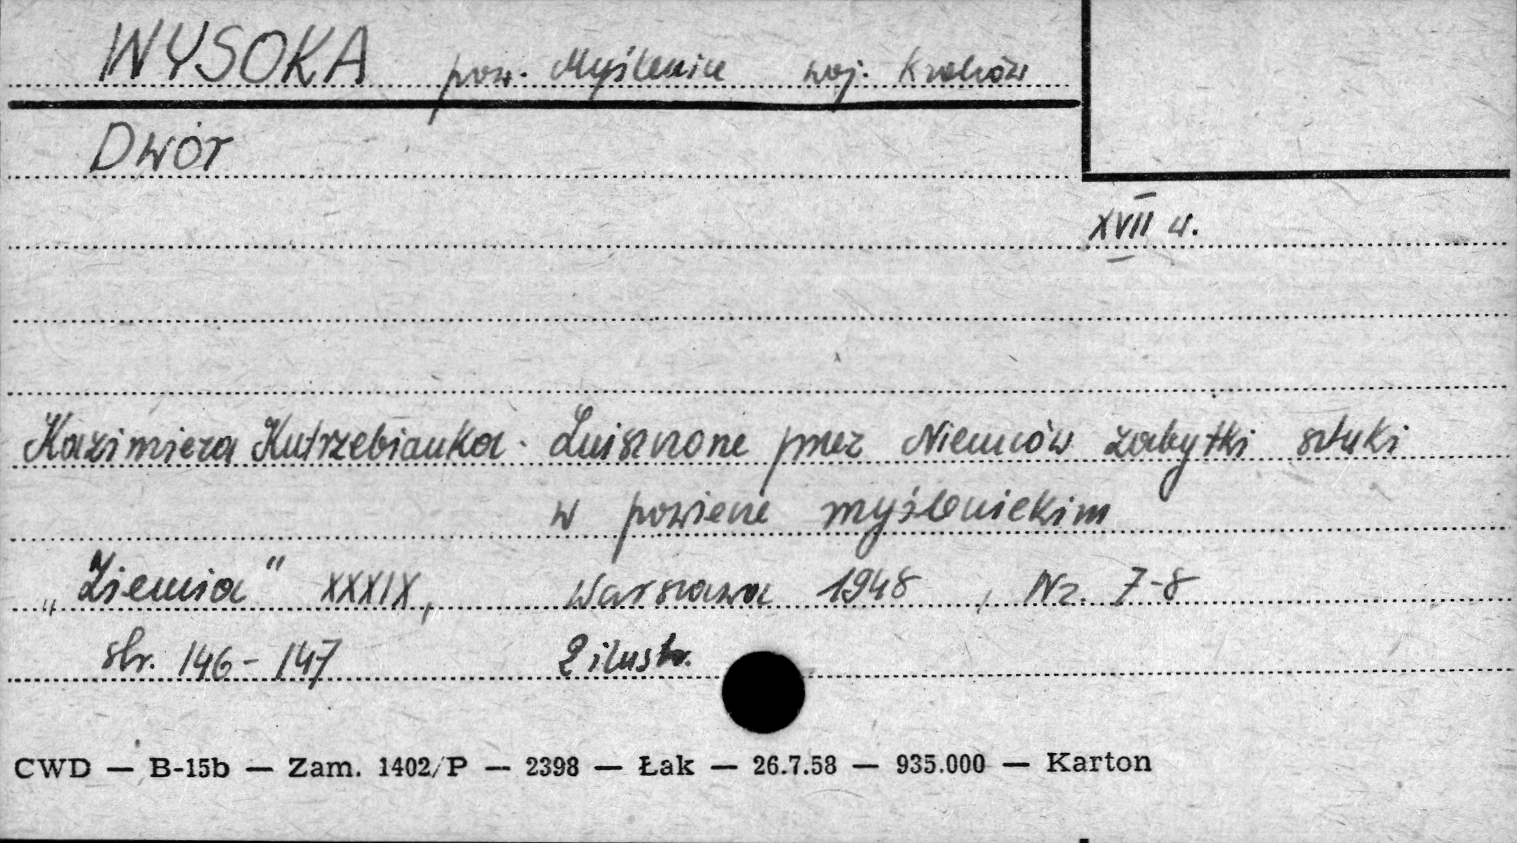 WYSOKA pow. Myślenice woj. Kraków
Dwór
XVII w.
Kazimiera Kutrzebianka. Zniszczone przez Niemców zabytki sztuki
w powiecie myślenickim
„Ziemia" XXXIX, Warszawa 1948, Nr. 7-8
str. 146-147 2 ilustr.
CWD — B-15b — Zam. 1402/P — 2398 — Łak — 26.7.58 — 935.000 — Karton